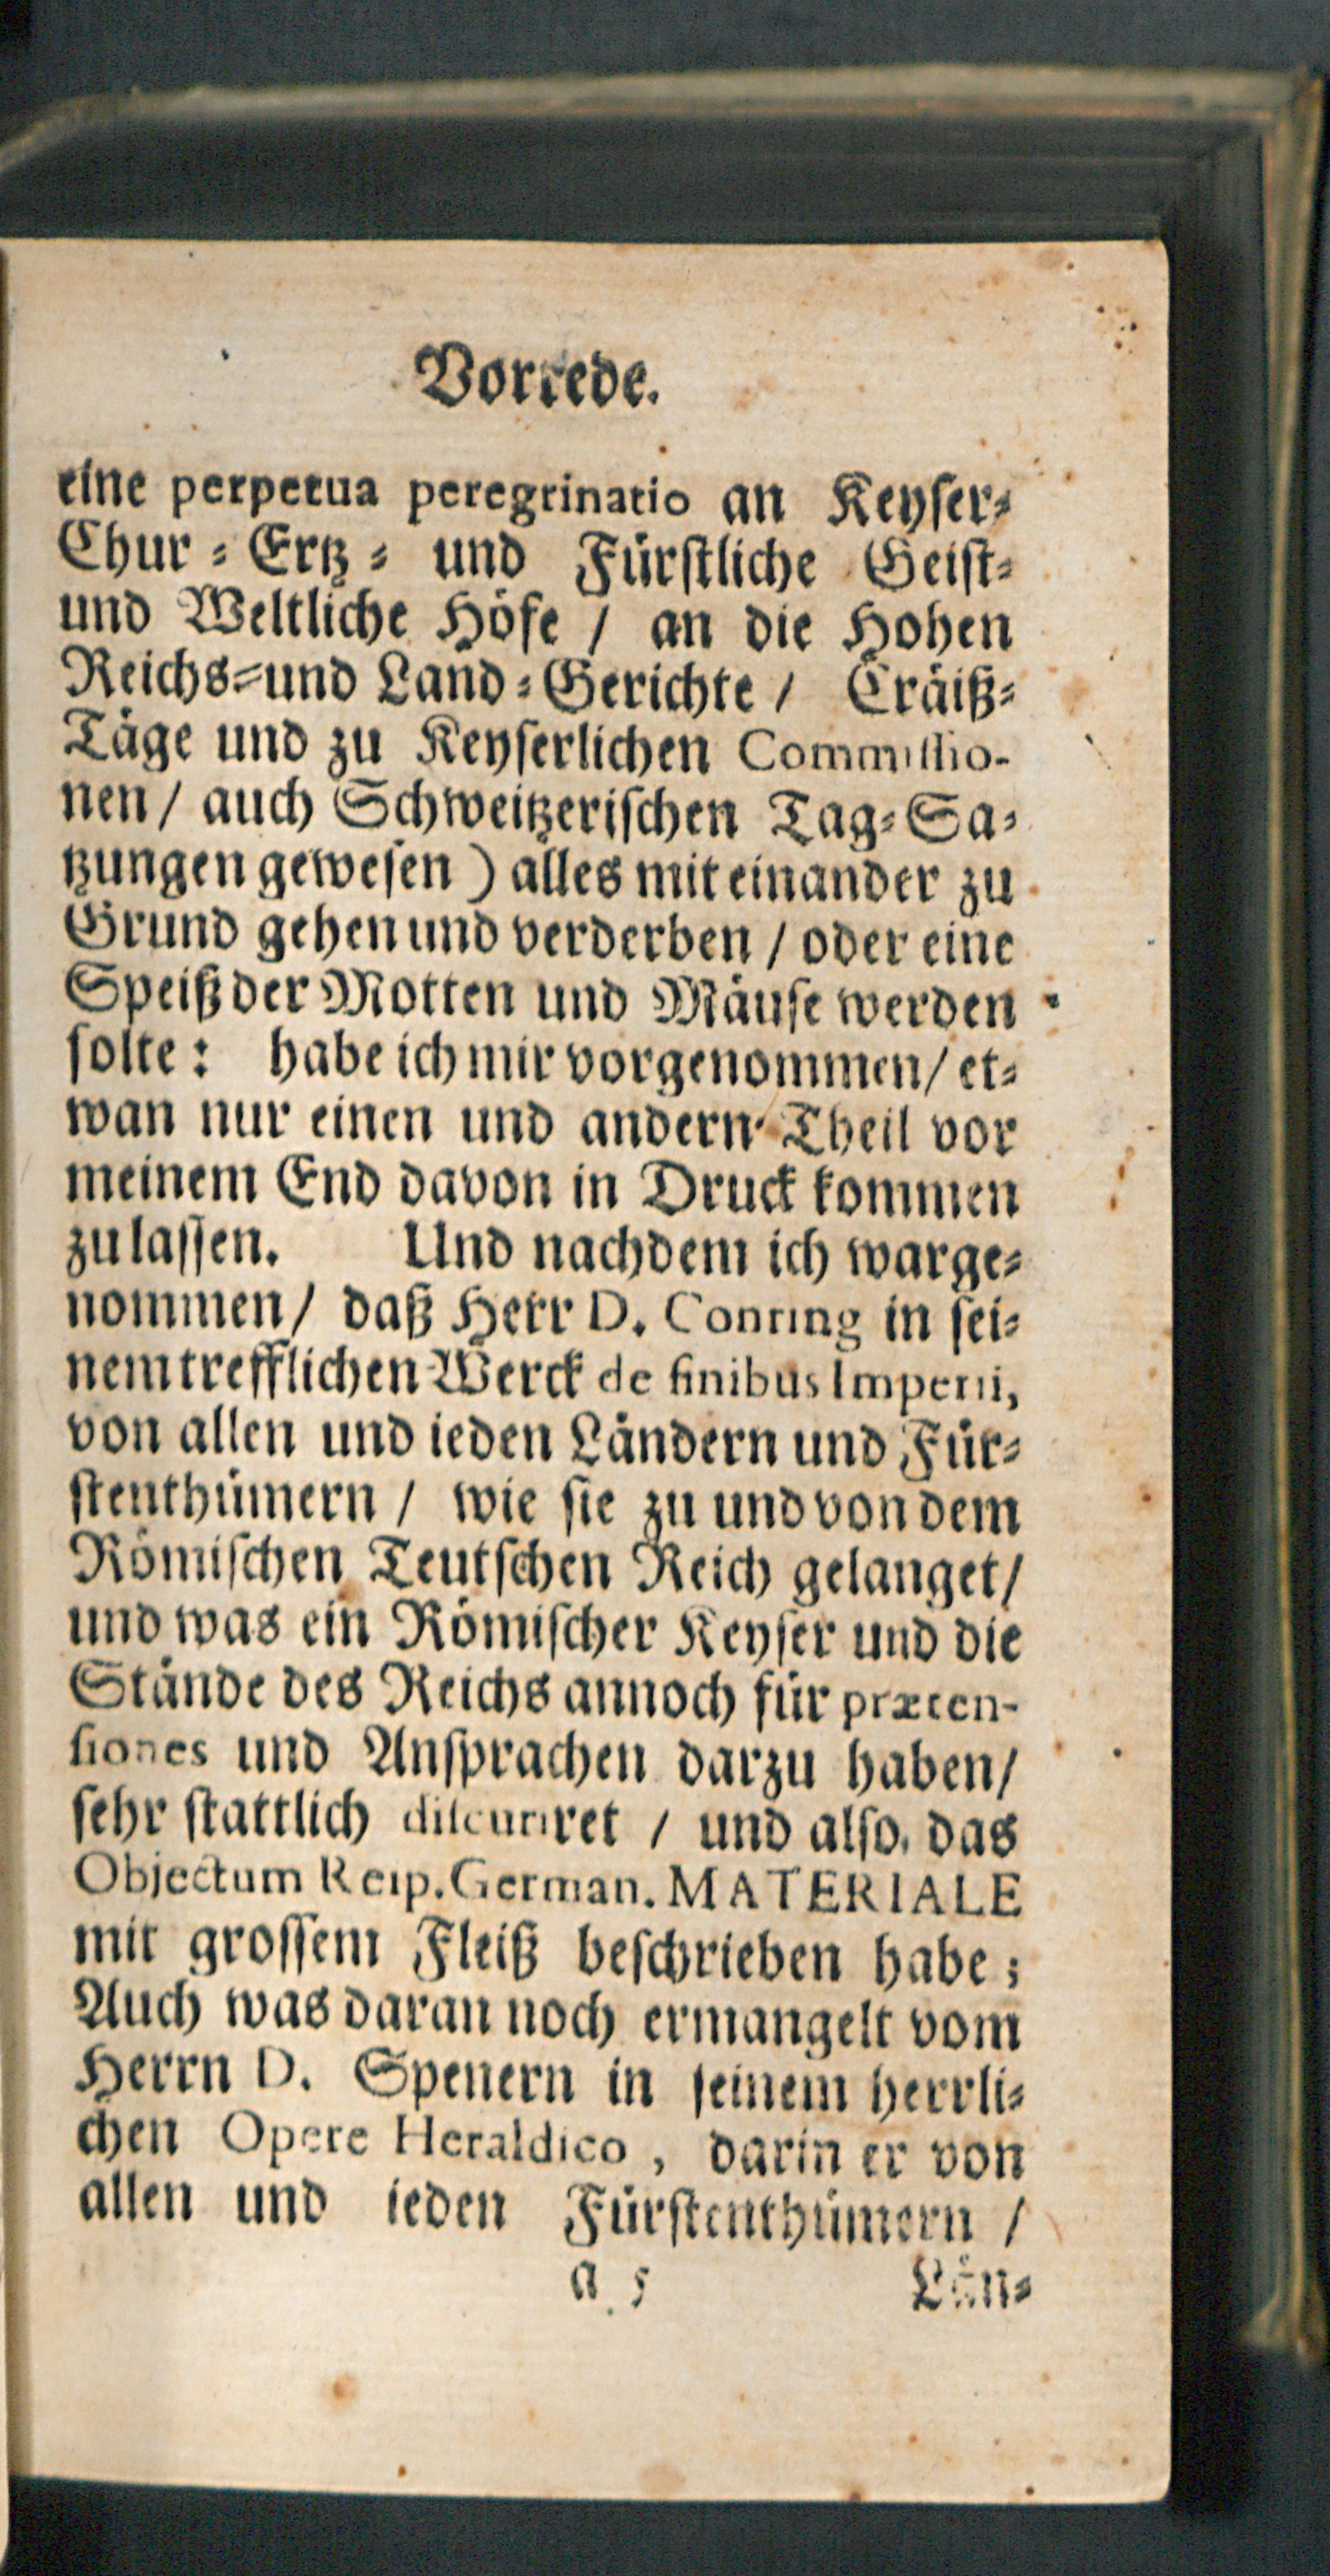 Vorrede.
eine perpetua peregrinatio an Keyser-
Chur-Ertz- und Fürstliche Geist-
und Weltliche Höfe / an die Hohen
Reichs-und Land-Gerichte / Cräiß-
Täge und zu Keyserlichen Commissio-
nen / auch Schweitzerischen Tag-Sa-
tzungen gewesen ) alles mit einander zu
Grund gehen und verderben / oder eine
Speiß der Motten und Mäuse werden
solte: habe ich mir vorgenommen / et-
wan nur einen und andern Theil vor
meinem End davon in Druck kommen
zu lassen. Und nachdem ich warge-
nommen / daß Herr D. Conring in sei-
nem trefflichen Werck de finibus Imperii,
von allen und ieden Ländern und Für-
stenthümern / wie sie zu und von dem
Römischen Teutschen Reich gelanget /
und was ein Römischer Keyser und die
Stände des Reichs annoch für præten-
siones und Ansprachen darzu haben /
sehr stattlich discuriret / und also das
Objectum Reip. German. MATERIALE
mit grossem Fleiß beschrieben habe;
Auch was daran noch ermangelt vom
Herrn D. Spenern in seinem herrli-
chen Opere Heraldico, darin er von
allen und ieden Fürstenthümern /
a 5 Län-